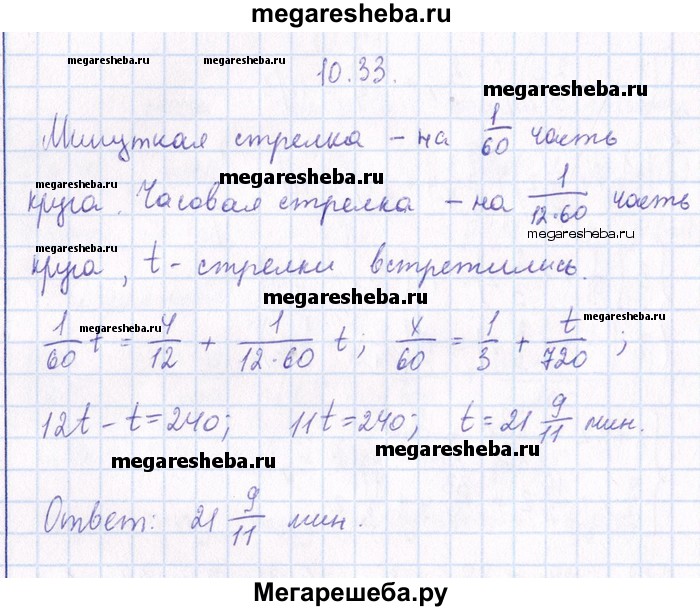 megaresheba.ru
megaresheba.ru 10.33. megaresheba.ru
megaresheba.ru
Минуткая стрелка – на 1/60 часть
megaresheba.ru
круга. Часовая стрелка – на 1/12·60 часть
megaresheba.ru megaresheba.ru
круга, t – стрелки встретились.
megaresheba.ru
megaresheba.ru megaresheba.ru
1/60 t = 4/12 + 1/12·60 t; x/60 = 1/3 + t/720;
12t – t = 240; 11t = 240; t = 21 9/11 мин.
megaresheba.ru megaresheba.ru
Ответ: 21 9/11 мин.
Мегарешеба.ру